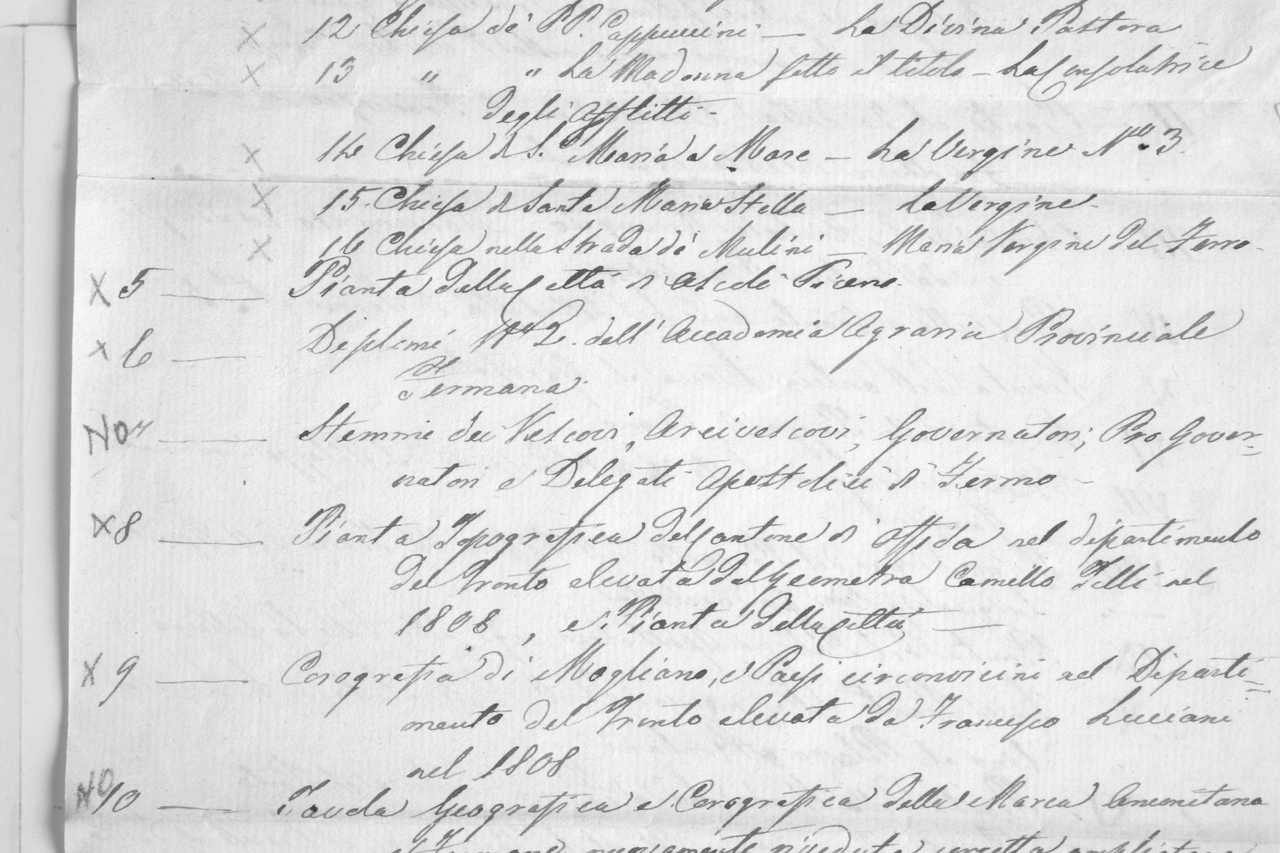 X 12 Chiesa de' PP. Cappuccini — La Divina Pastora
X 13 " " La Madonna sotto il titolo — La Consolatrice
degli afflitti -
X 14 Chiesa di S. Maria a Mare — La Vergine N° 3.
X 15. Chiesa di Santa Maria Stella — La Vergine.
X 16 Chiesa nella Strada de' Mulini — Maria Vergine del Ferro.
X 5 — Pianta della Città di Ascoli Piceno.
X 6 — Diplomi N° 2. dell'Accademia Agraria Provinciale
Fermana.
NO 7 — Stemmi dei Vescovi, Arcivescovi, Governatori, Pro Gover=
natori e Delegati Apostolici di Fermo -
X 8 — Pianta Topografica del Cantone di Offida nel dipartimento
del Tronto elevata dal Geometra Camillo nel
1808, e Pianta della Città —
X 9 — Corografia di Mogliano, e Paesi circonvicini nel Diparti=
mento del Tronto elevata da Francesco Luciani
nel 1808
NO 10 — Tavola Geografica e Corografica della Marca Anconitana
e Fermana nuovamente riveduta corretta